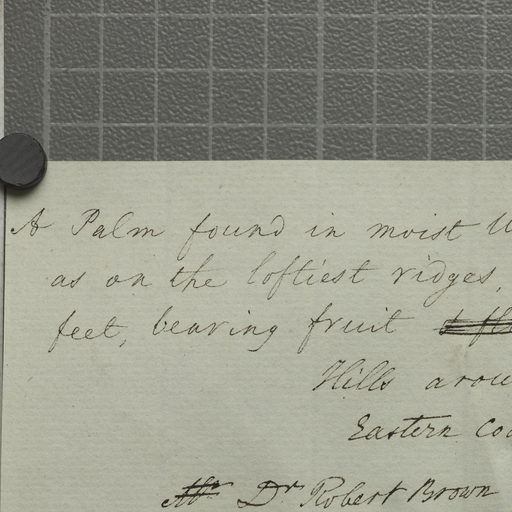 A Palm found in moist
as on the loftiest ridges,
feet, bearing fruit
Hills arou
Eastern Coa
Mr Dr Robert Brown